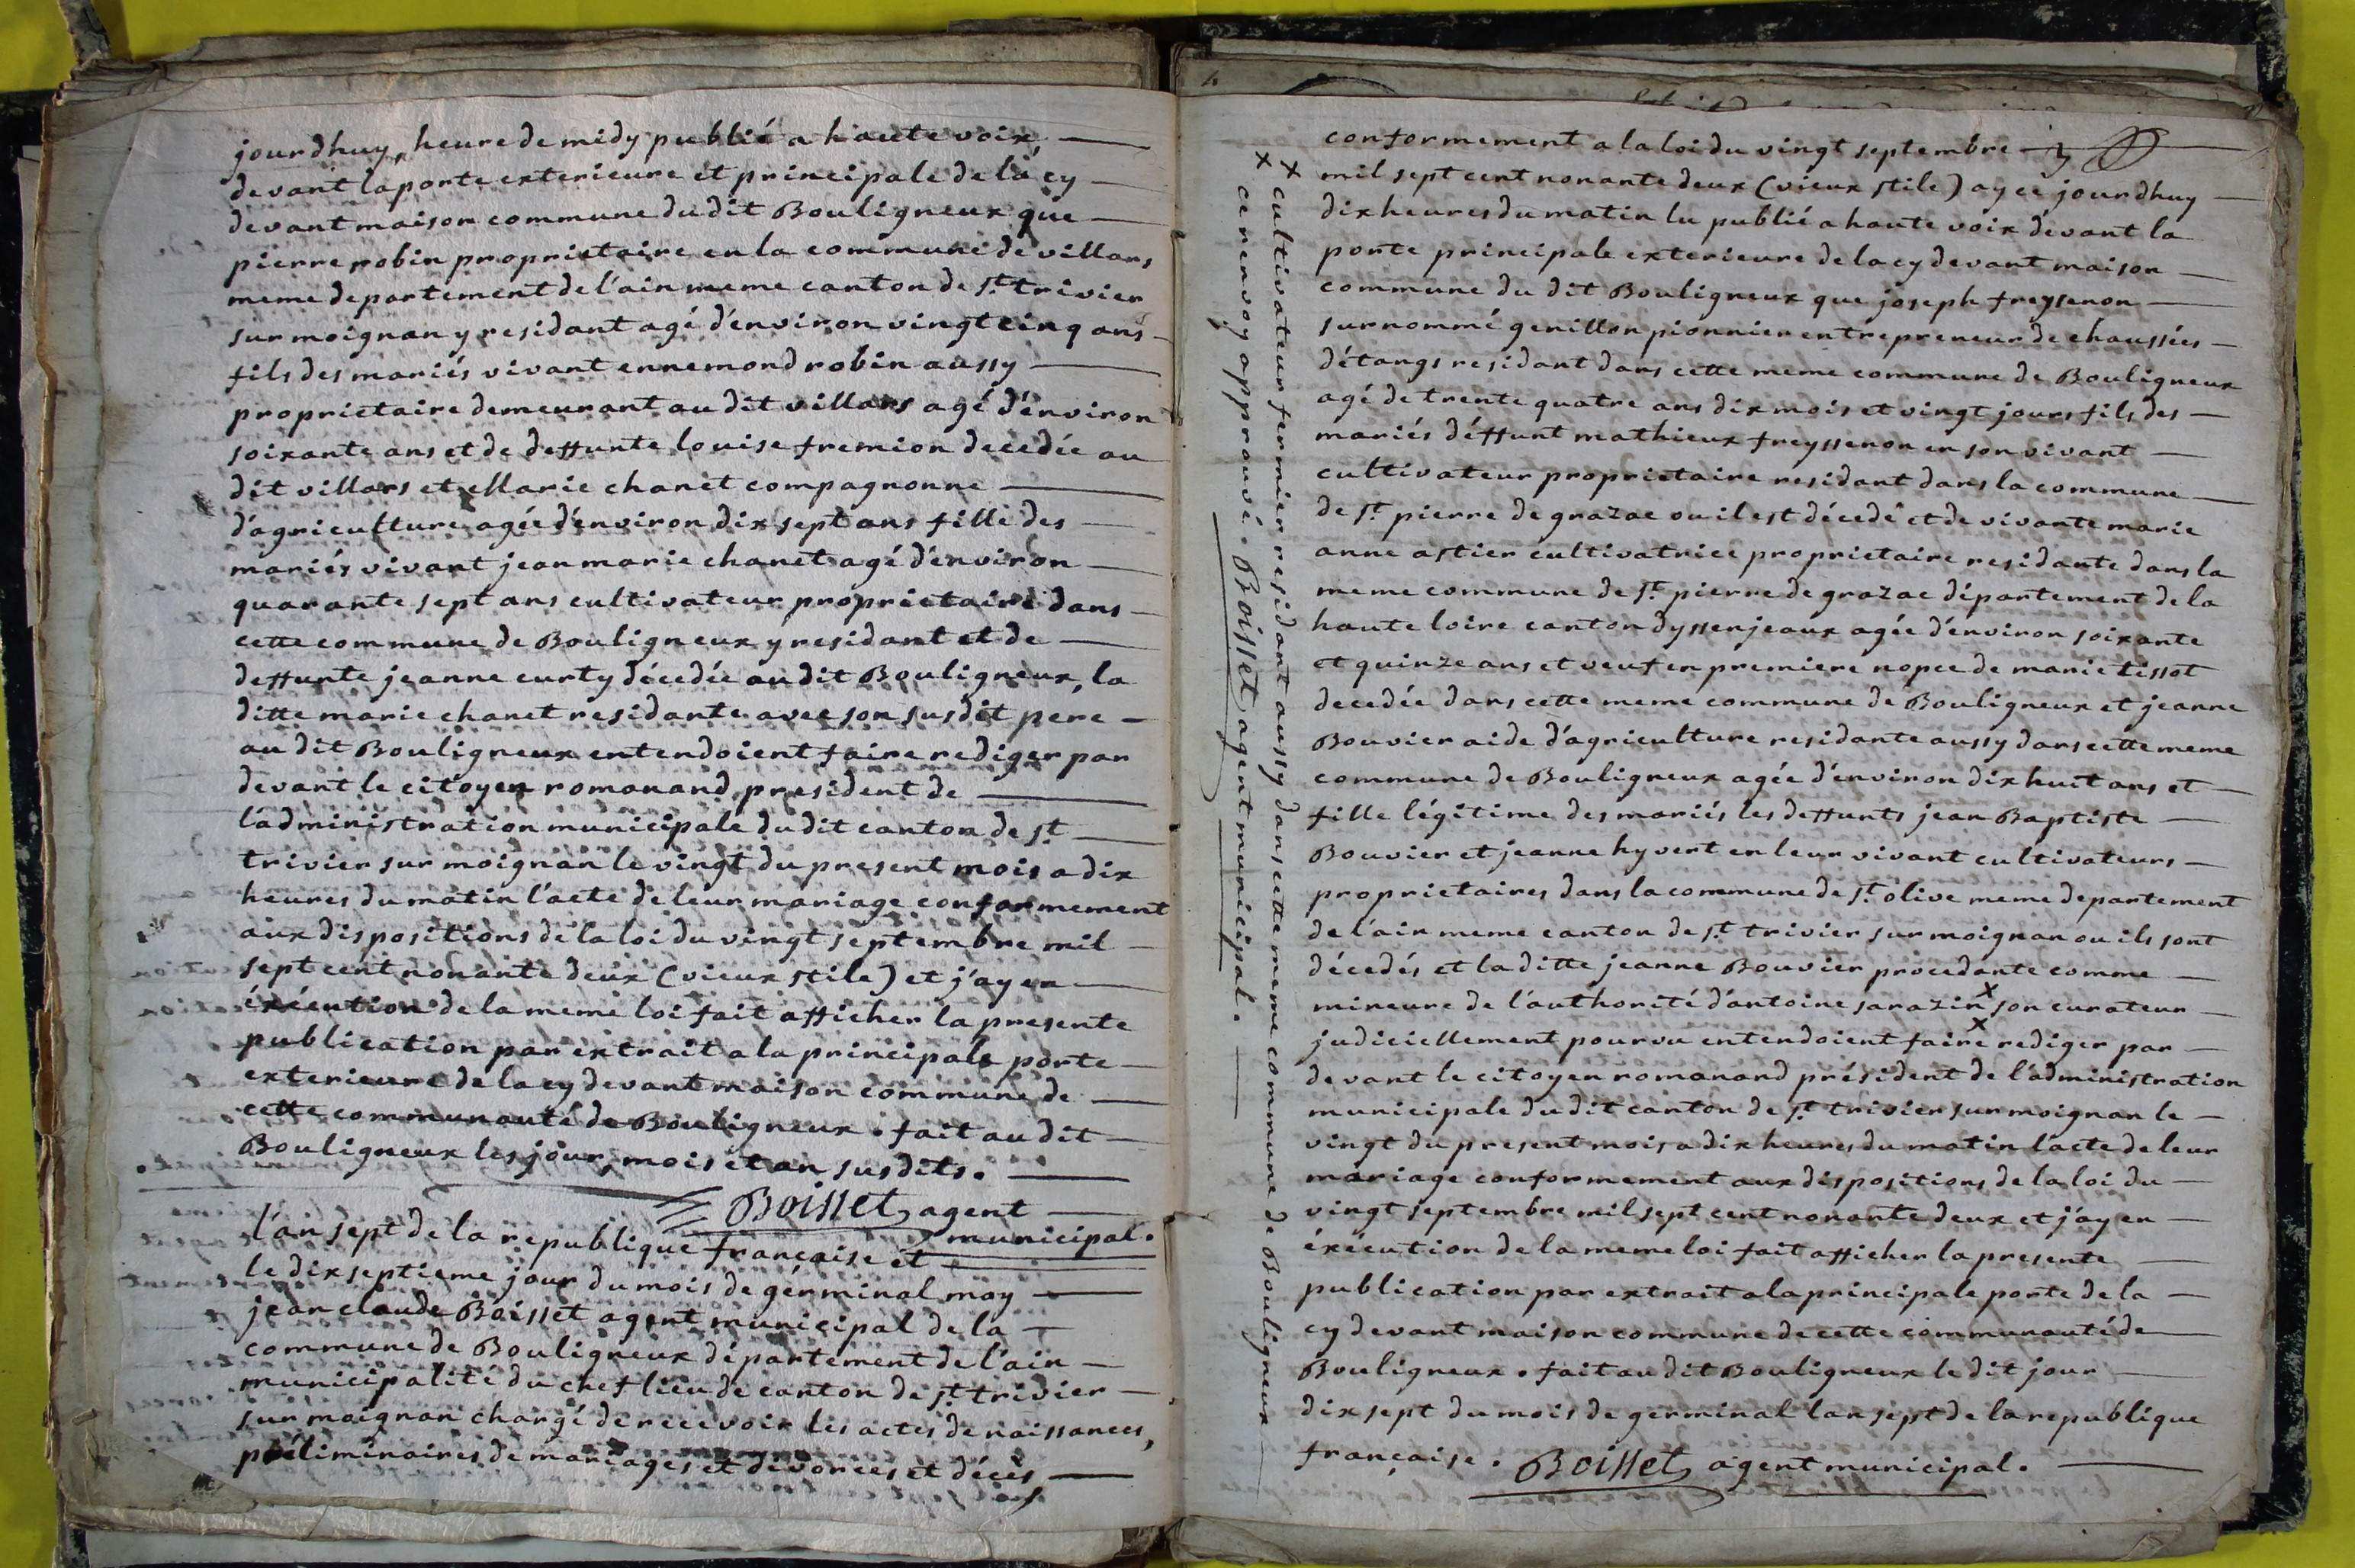 jourdhuy, heure de midy publié a haute voix,
devant la porte exterieure et principale de la cy
devant maison commune du dit Bouligneux que
pierre robin proprietaire en la commune de villars
meme departement de l'ain meme canton de st. trivier
sur moignan y residant agé d'environ vingt cinq ans
fils des mariés vivant ennemond robin aussy
proprietaire demeurant au dit villars agé d'environ
soixante ans et de deffunte louise fremion decedée au
dit villars et Marie chanet compagnonne
d'agriculture agée d'environ dix sept ans fille des
mariés vivant jean marie chanet agé d'environ
quarante sept ans cultivateur proprietaire dans
cette commune de Bouligneux y residant et de
deffunte jeanne curty décedée au dit Bouligneux, la
ditte marie chanet residante avec son susdit pere
au dit Bouligneux entendoient faire rediger par
devant le citoyen romanand president de
l'administration municipale du dit canton de st.
trivier sur moignan le vingt du present mois a dix
heures du matin l'acte de leur mariage conformement
aux dispositions de la loi du vingt septembre mil
sept cent nonante deux (vieux stile) et j'ay en
éxécution de la meme loi fait afficher la presente
publication par extrait a la principale porte
exterieure de la cy devant maison commune de
cette communauté de Bouligneux. fait au dit
Bouligneux les jour, mois et an susdits.
Boisset agent
municipal.
l'an sept de la republique française et
le dix septieme jour du mois de germinal moy
jean claude Boisset agent municipal de la
commune de Bouligneux département de l'ain
municipalité du chef lieu de canton de st. trivier
sur moignan chargé de recevoir les actes de naissances,
préliminaires de mariages et divorces et décès
conformement a la loi du vingt septembre
mil sept cent nonante deux (vieux stile) ay ce jourdhuy
dix heures du matin lu publié a haute voix devant la
porte principale exterieure de la cy devant maison
commune du dit Bouligneux que joseph freyssenon
surnommé genillon pionnier entrepreneur de chaussées
d'étangs residant dans cette meme commune de Bouligneux
agé de trente quatre ans dix mois et vingt jours fils des
mariés déffunt mathieux freyssenon en son vivant
cultivateur proprietaire residant dans la commune
de st. pierre de grazac ou il est décedé et de vivante marie
anne astier cultivatrice proprietaire residante dans la
meme commune de st. pierre de grazac département de la
haute loire canton dyssenjeaux agée d'environ soixante
et quinze ans et veuf en premiere nopce de marie tissot
decedée dans cette meme commune de Bouligneux et jeanne
Bouvier aide d'agriculture residante aussy dans cette meme
commune de Bouligneux agée d'environ dix huit ans et
fille légitime des mariés les deffunts jean Baptiste
Bouvier et jeanne hyvert en leur vivant cultivateurs
proprietaires dans la commune de st. olive meme departement
de l'ain meme canton de st. trivier sur moignan ou ils sont
décedés et la ditte jeanne Bouvier procedante comme
mineure de l'authorité d'antoine sarazin x son curateur
judiciellement pourvu entendoient faire x rediger par
devant le citoyen romanand président de l'administration
municipale du dit canton de st. trivier sur moignan le
vingt du present mois a dix heures du matin l'acte de leur
mariage conformement aux dispositions de la loi du
vingt septembre mil sept cent nonante deux et j'ay en
éxécution de la meme loi fait afficher la presente
publication par extrait a la principale porte de la
cy devant maison commune de cette communauté de
Bouligneux. fait au dit Bouligneux le dit jour
dix sept du mois de germinal lan sept de la republique
française. Boisset agent municipal.
x cultivateur fermier residant aussy dans cette meme commune de Bouligneux
x ce renvoy approuvé. Boisset agent municipal.